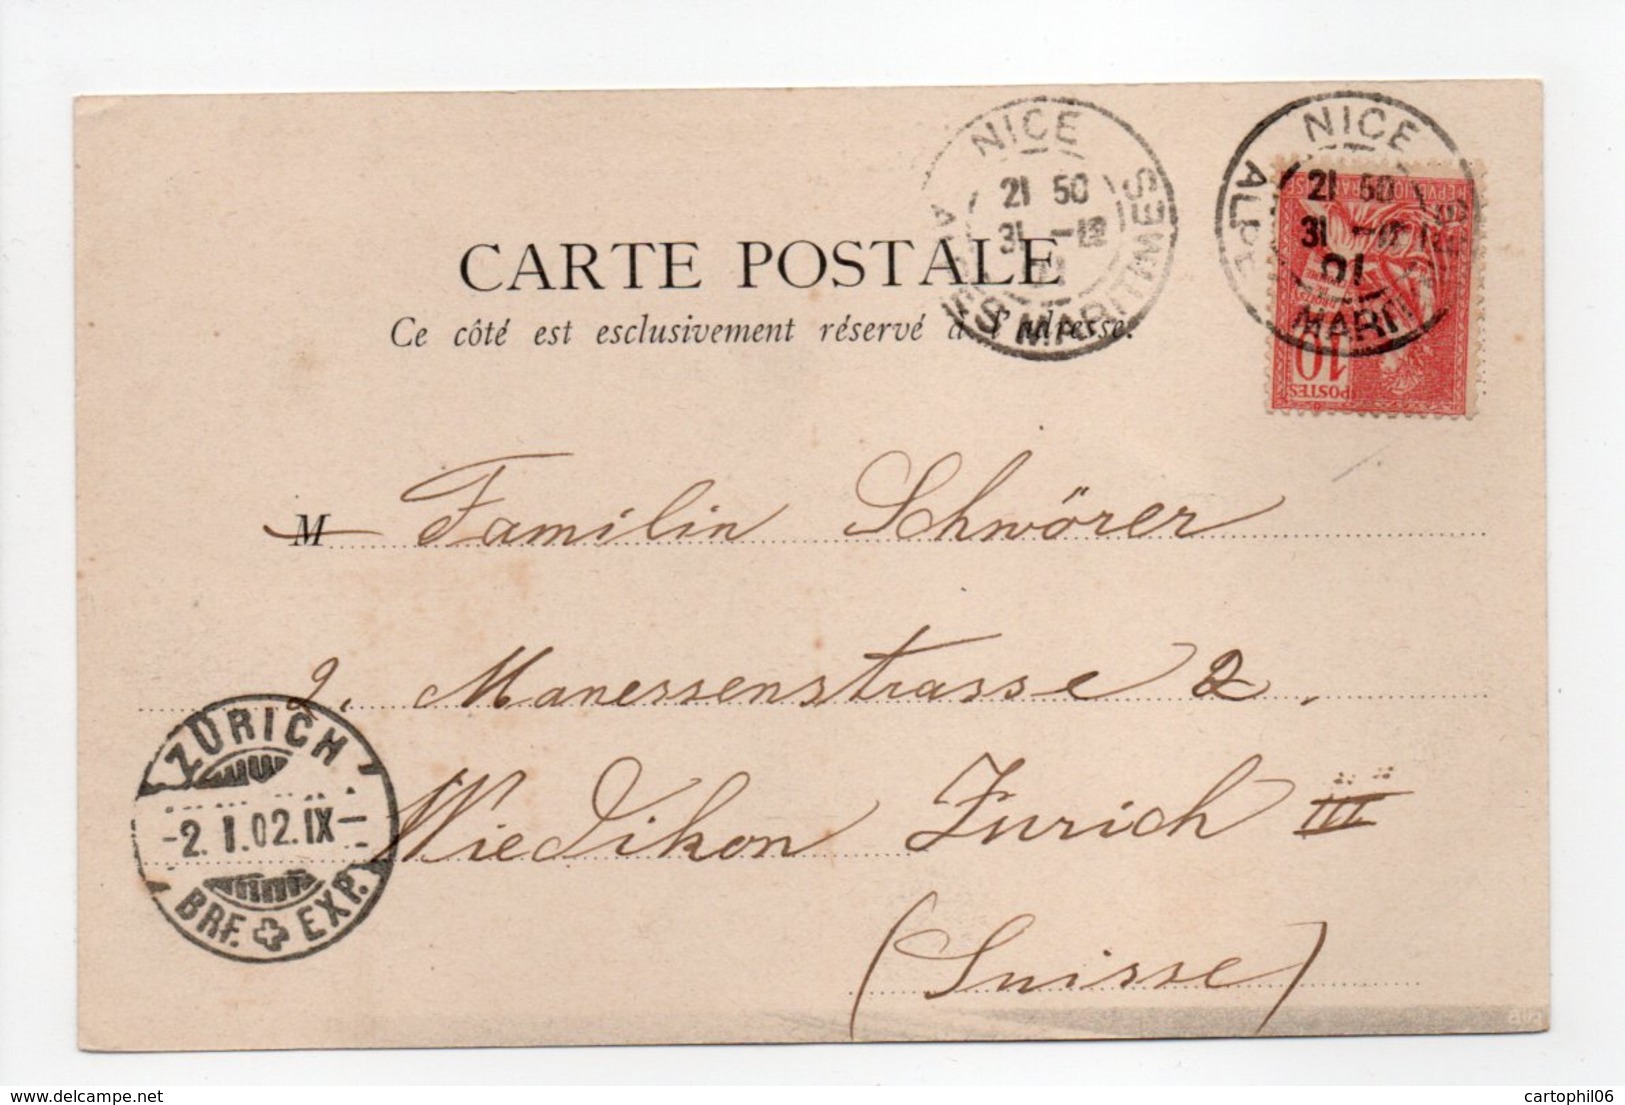 NICE
21 50
31 -12
ALPES MARITIMES
NICE
21 50
31 -12
01
ALPES MARITIMES
REPUBLIQUE FRANÇAISE
10
POSTES
CARTE POSTALE
Ce côté est esclusivement réservé à l'adresse.
M Familin Schwörer
2. Manessenstrasse 2.
Wiedikon Zurich III
(Suisse)
ZÜRICH
-2. I. 02. IX-
BRF. EXP.
cartophil06